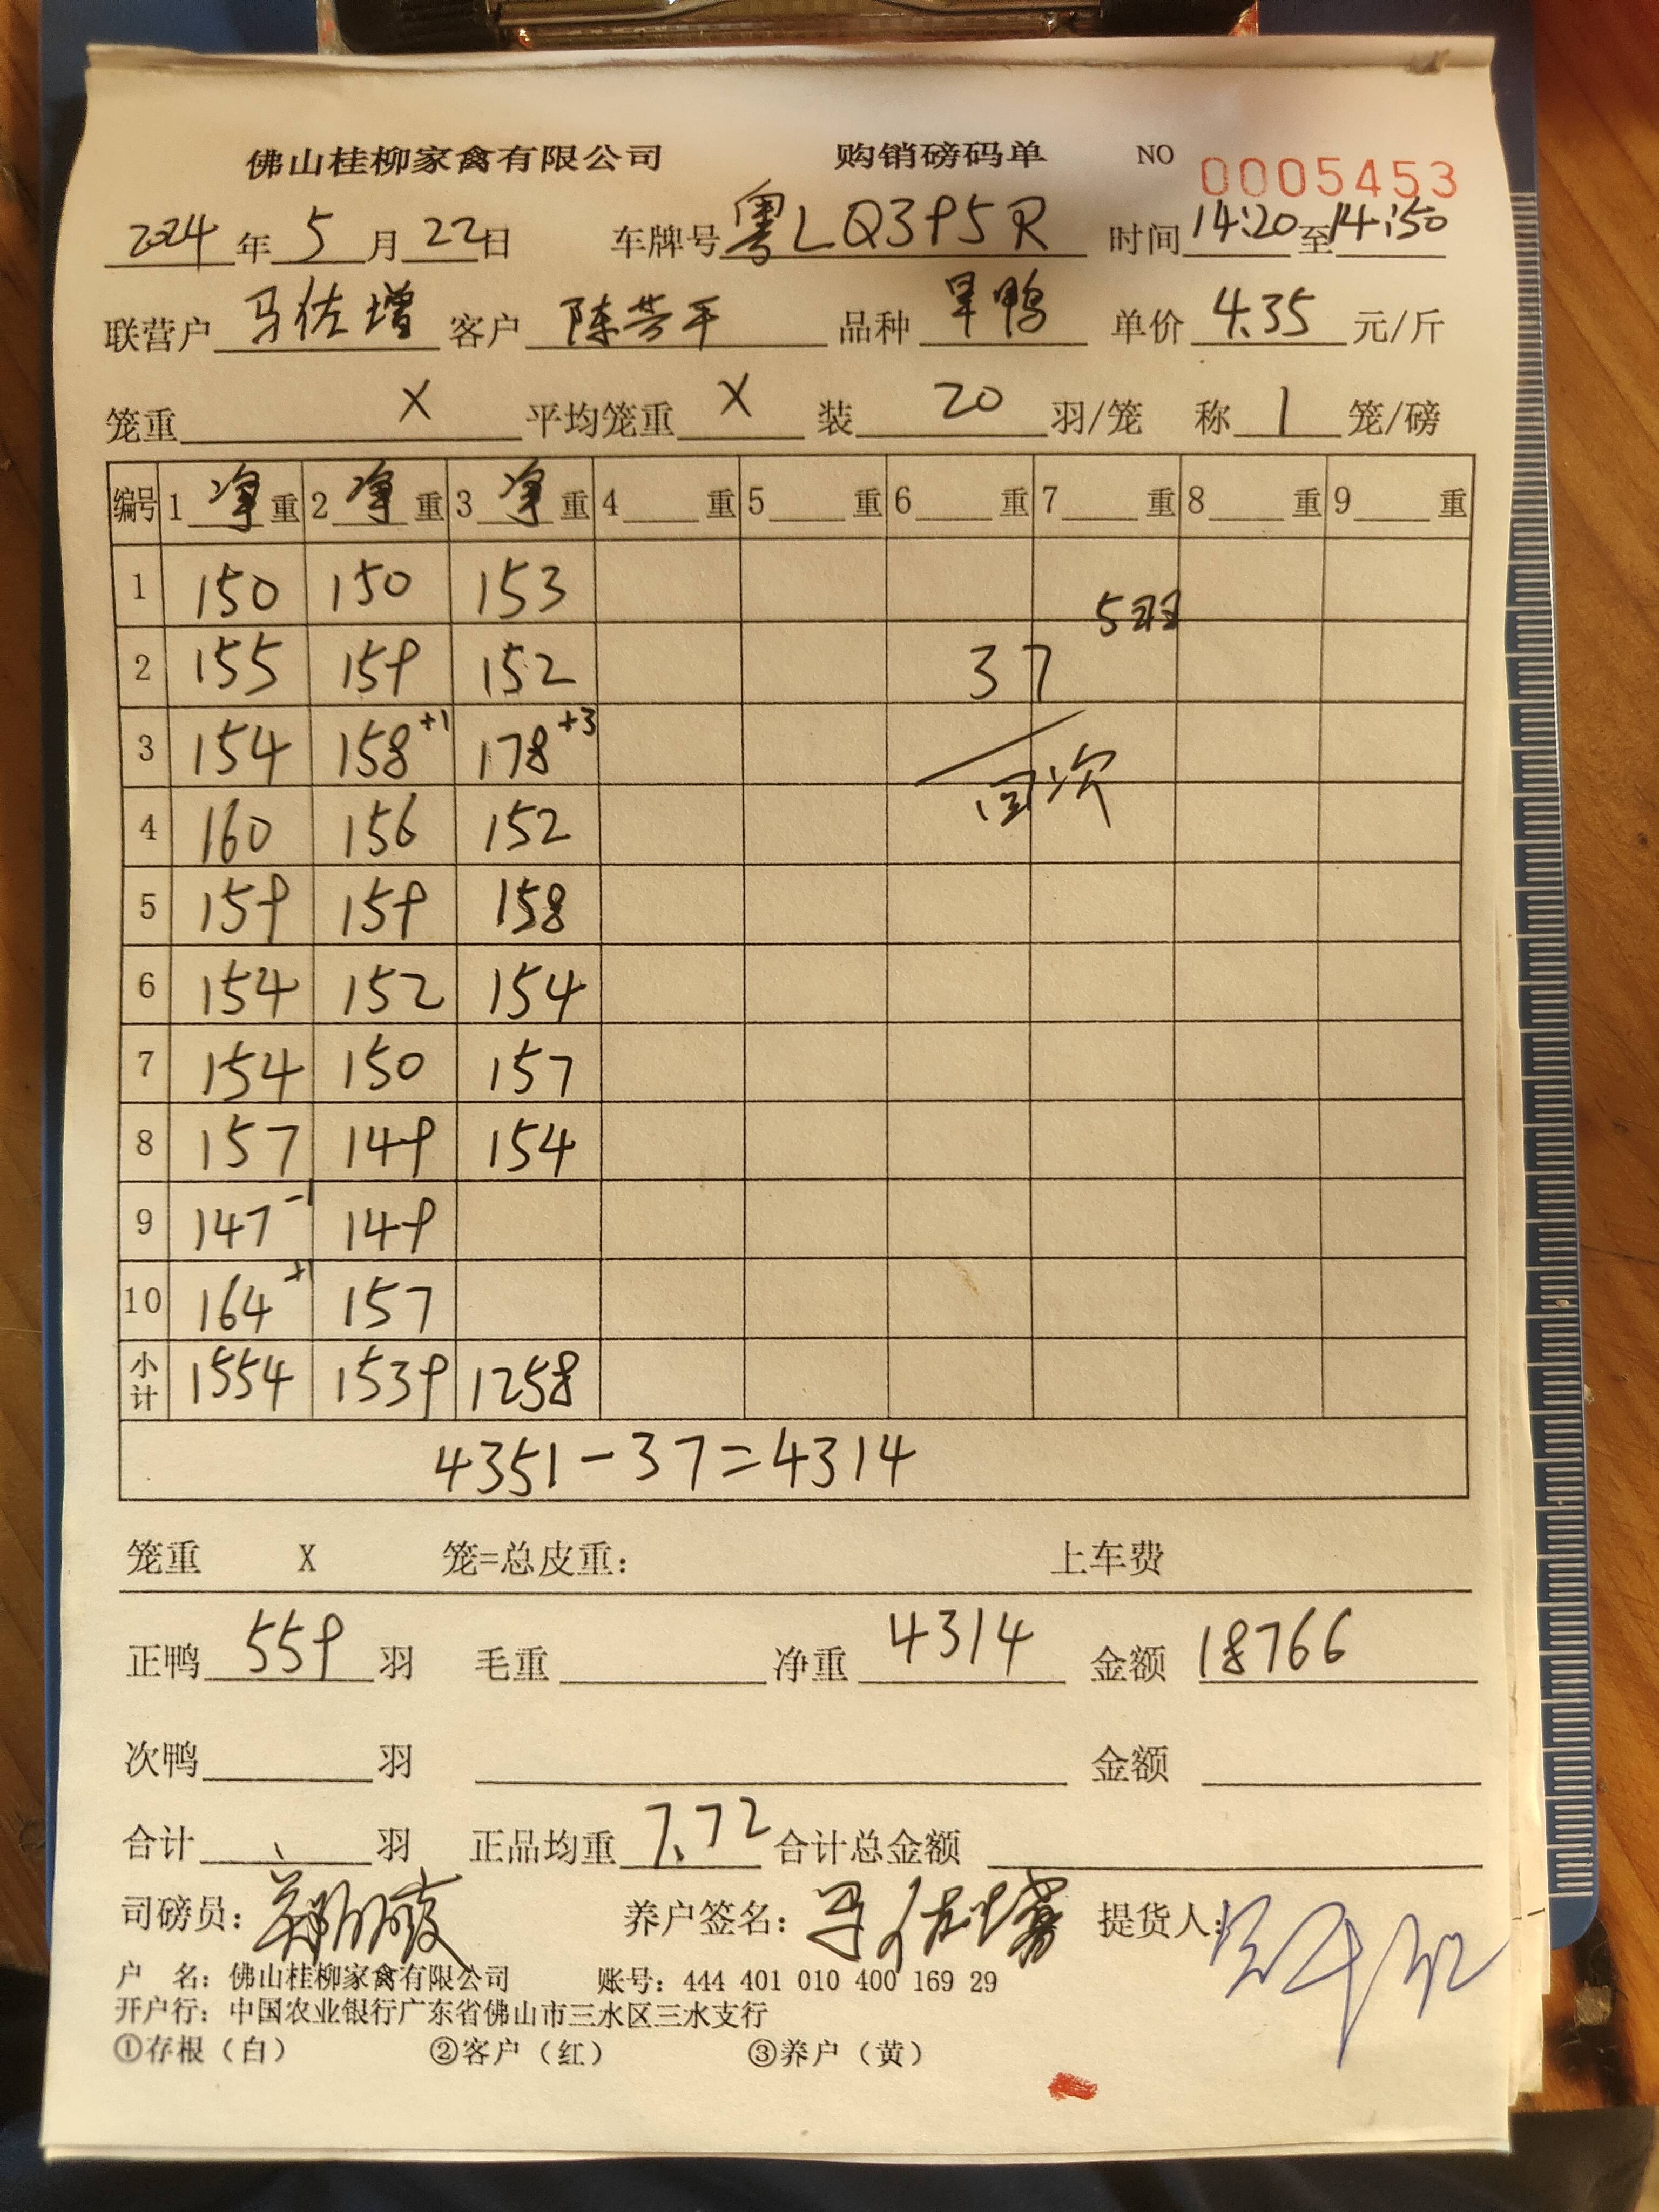 佛山桂柳家禽有限公司 购销磅码单 NO 0005453
2024年5月22日 车牌号粤LQ395R 时间14:20至14:50
联营户马佐增 客户陈芳平 品种旱鸭 单价4.35元/斤
笼重X平均笼重X装20羽/笼 称1笼/磅
编号 1净重 2净重 3净重 4重 5重 6重 7重 8重 9重
1 150 150 153
5羽
2 155 159 152 37
3 154 158+1 178+3
回次
4 160 156 152
5 159 159 158
6 154 152 154
7 154 150 157
8 157 149 154
9 147-1 149
10 164+1 157
小计 1554 1539 1258
4351-37=4314
笼重 X 笼=总皮重: 上车费
正鸭559羽 毛重 净重4314 金额18766
次鸭 羽 金额
合计 羽 正品均重7.72合计总金额
司磅员: 养户签名:马佐增 提货人:
户 名: 佛山桂柳家禽有限公司 账号: 444 401 010 400 169 29
开户行: 中国农业银行广东省佛山市三水区三水支行
①存根（白） ②客户（红） ③养户（黄）